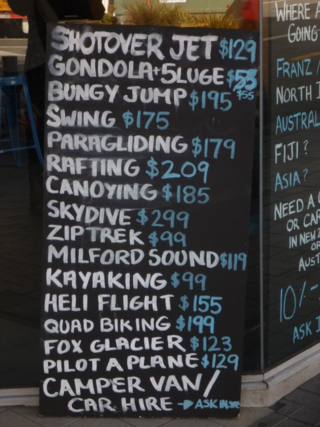 SHOTOVER JET $129
GONDOLA+5LUGE $55
$55
BUNGY JUMP $195
SWING $175
PARAGLIDING $179
RAFTING $209
CANOYING $185
SKYDIVE $299
ZIPTREK $99
MILFORD SOUND $119
KAYAKING $99
HELI FLIGHT $155
QUAD BIKING $199
FOX GLACIER $123
PILOT A PLANE $129
CAMPER VAN/
CAR HIRE → ASK INSIDE
WHERE A
GOING
FRANZ
NORTH I
AUSTRAL
FIJI?
ASIA?
NEED A
OR CAR
IN NEW Z
OR
AUST
10%
ASK I